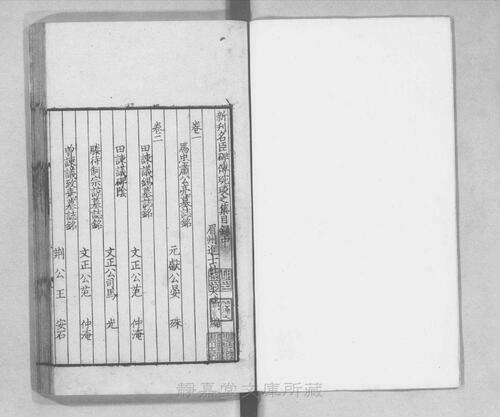 新刊名臣碑傳琬琰之集目錄中
眉州進士杜大珪編
卷一
馬忠肅公亮墓誌銘 元獻公晏 殊
卷二
田諫議錫墓誌銘 文正公范 仲淹
田諫議碑陰 文正公司馬 光
滕待制宗諒墓誌銘 文正公范 仲淹
曽諫議致堯墓誌銘 荆公王 安石
靜嘉堂文庫所藏